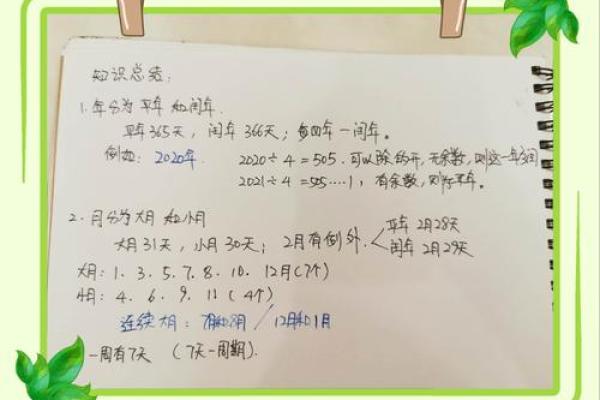 知识总结:
1. 年分为 平年 和闰年.
平年365天, 闰年 366天; 每四年一闰年。
例如: 2020年. 2020÷4=505. 可以除的开, 无余数, 则这一年为闰
2021÷4=505....1, 有余数, 则为平年。
2. 月分为大月 和小月
大月31天, 小月30天; 2月有例外. 平年 2月28天
闰年 2月29天
大月: 1. 3. 5. 7. 8. 10. 12月(7个)
小月: 4. 6. 9. 11 (4个)
连续大月: 7月和8月 / 12月和1月
一周有7天 (7天一周期).